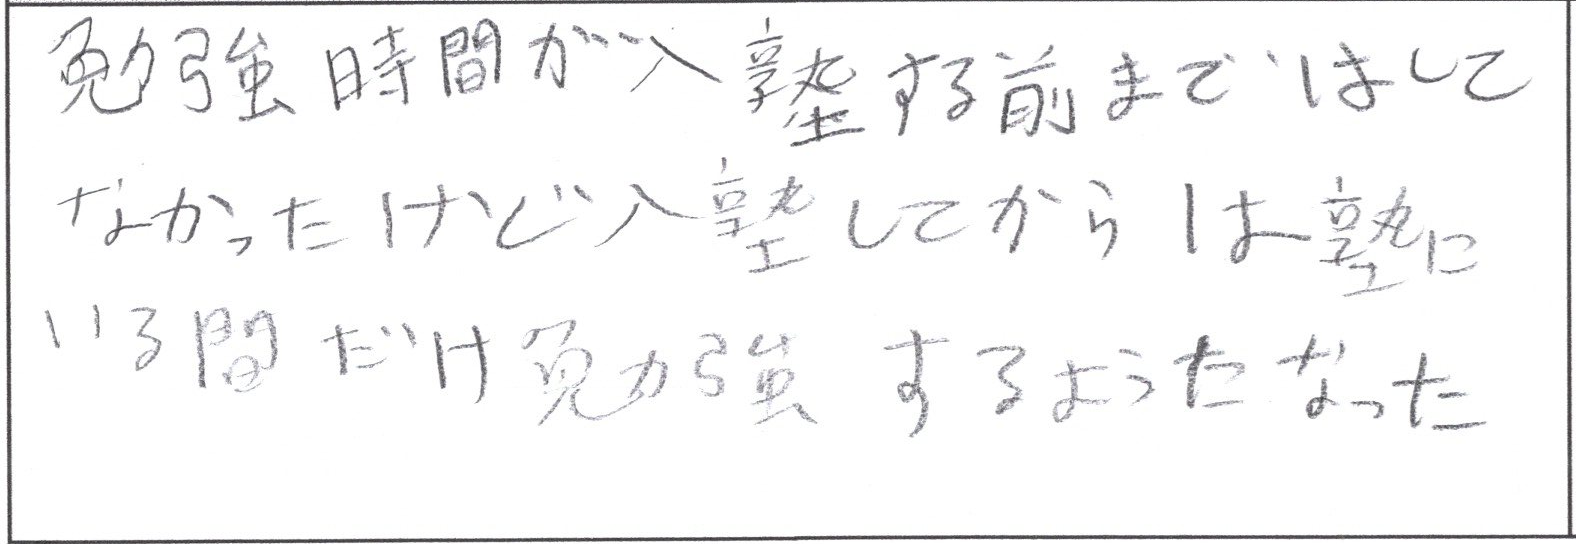 勉強時間が入塾する前まではして
なかったけど入塾してからは塾に
いる間だけ勉強するようたなった